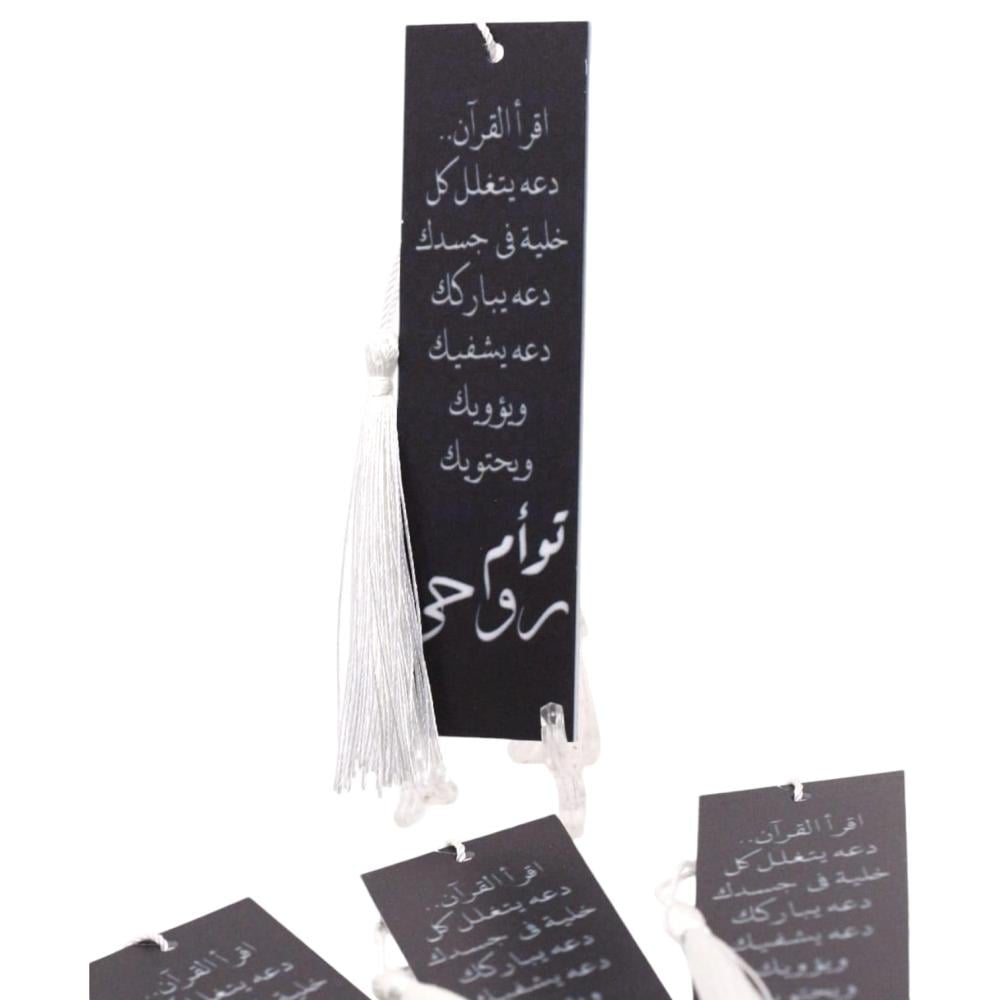 اقرأ القرآن..
دعه يتغلل كل
خلية فى جسدك
دعه يباركك
دعه يشفيك
ويؤويك
ويحتويك
توأم
روحي
اقرأ القرآن..
دعه يتغلل كل
خلية فى جسدك
دعه يباركك
دعه يشفيك
اقرأ القرآن..
دعه يتغلل كل
خلية فى جسدك
دعه يباركك
دعه يشفيك
ويؤويك
ويحتويك
اقرأ القرآن..
دعه يتغلل كل